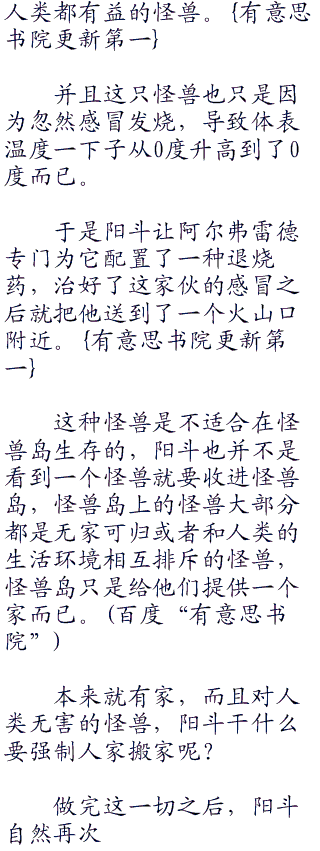 人类都有益的怪兽。{有意思
书院更新第一}
并且这只怪兽也只是因
为忽然感冒发烧，导致体表
温度一下子从0度升高到了0
度而已。
于是阳斗让阿尔弗雷德
专门为它配置了一种退烧
药，治好了这家伙的感冒之
后就把他送到了一个火山口
附近。{有意思书院更新第
一}
这种怪兽是不适合在怪
兽岛生存的，阳斗也并不是
看到一个怪兽就要收进怪兽
岛，怪兽岛上的怪兽大部分
都是无家可归或者和人类的
生活环境相互排斥的怪兽，
怪兽岛只是给他们提供一个
家而已。(百度“有意思书
院”)
本来就有家，而且对人
类无害的怪兽，阳斗干什么
要强制人家搬家呢？
做完这一切之后，阳斗
自然再次